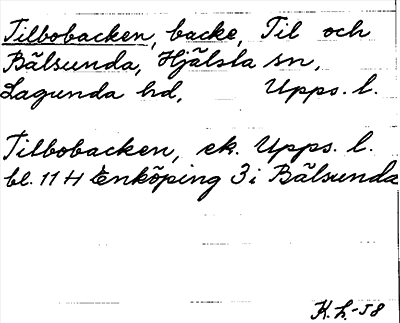 Tilbobacken, backe, Til och
Bälsunda, Hjälsta sn,
Lagunda hd, Upps. l.
Tilbobacken, ek. Upps. l.
bl. 11 H Enköping 3 i Bälsunda
K.h.-58